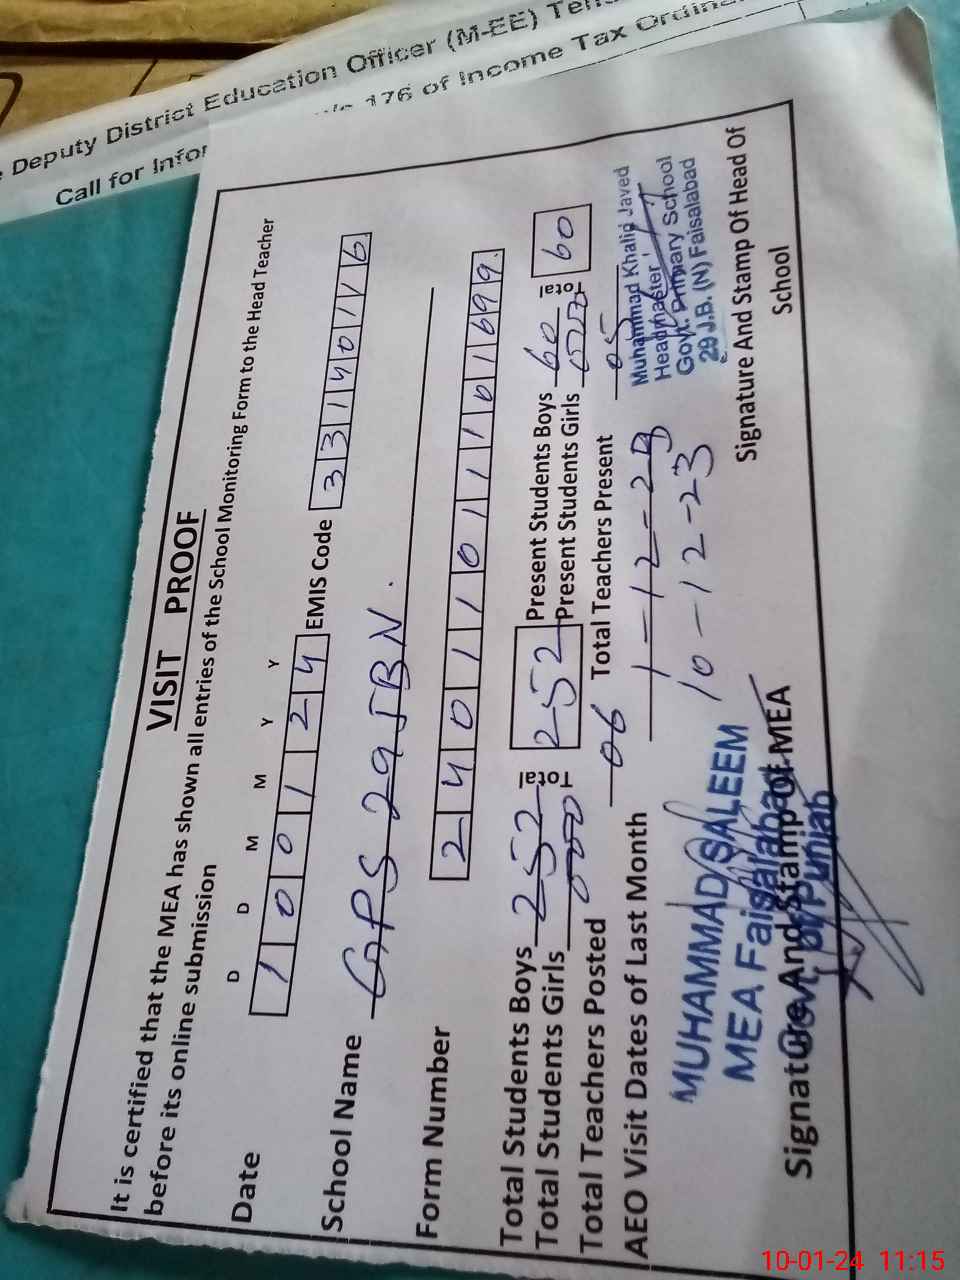 Deputy District Education Officer (M-EE)
176 of Income Tax
Call for
VISIT PROOF
It is certified that the MEA has shown all entries of the School Monitoring Form to the Head Teacher
before its online submission
D D M M Y Y
Date 10 01 24 EMIS Code 33140116
School Name GPS 29 JBN.
Form Number
Total Students Boys 252 Total 252 Present Students Boys 60 Total 60
Total Students Girls 000 Present Students Girls 000
Total Teachers Posted 06 Total Teachers Present 05
AEO Visit Dates of Last Month 1-12-23
10-12-23
MUHAMMAD SALEEM
MEA Faisalabad
Govt. of Punjab
Signature And Stamp Of MEA
Muhammad Khalid Javed
Headmaster
Govt. Primary School
29 J.B. (N) Faisalabad
Signature And Stamp Of Head Of
School
10-01-24 11:15